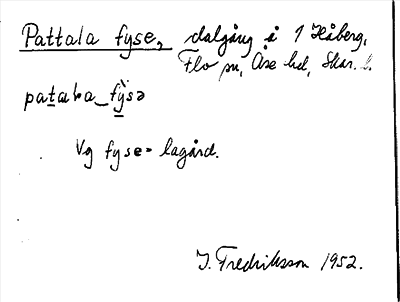 Pattala fyse, dalgång å 1 Håberg,
Flo sn, Åse hd, Skar. l.
pataɫa_fỳsə
Vg fyse = lagård.
J. Fredriksson 1952.